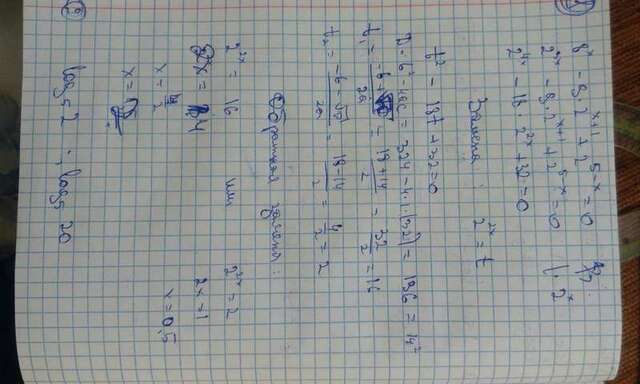 8^x - 9·2^(x+1) + 2^(5-x) = 0
2^(3x) - 9·2^(x+1) + 2^(5-x) = 0 | · 2^x
2^(4x) - 18 · 2^(2x) + 32 = 0
Замена: 2^(2x) = t
t² - 18t + 32 = 0
D = b² - 4ac = 324 - 4·1·(32) = 196 = 14²
t₁ = = (18+14)/2 = 32/2 = 16
t₂ = (-b-√D)/2a = (18-14)/2 = 4/2 = 2
Обратная замена:
2^(2x) = 16 или 2^(2x) = 2
2x = 4 2x = 1
x = 4/2 x = 0,5
x =
log₅ 2 ; log₅ 20